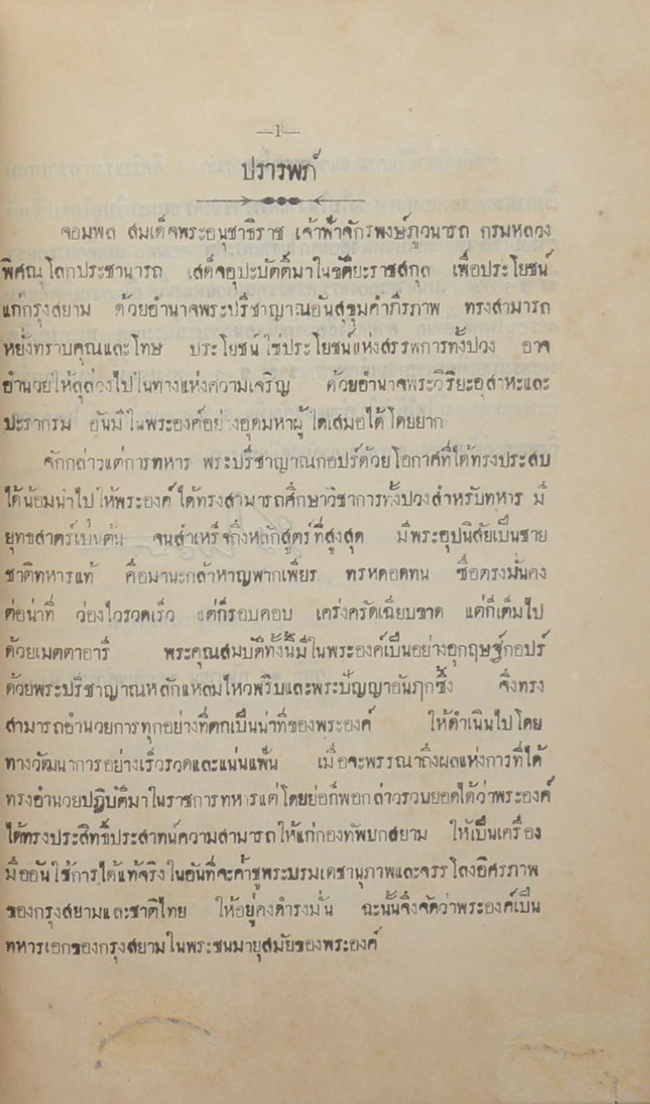 —1—
ปรารพภ์
จอมพล สมเด็จพระอนุชาธิราช เจ้าฟ้าจักรพงษ์ภูวนารถ กรมหลวง
พิศณุโลกประชานารถ เสด็จอุปะบัตติ์มาในขัติยะราชสกุล เพื่อประโยชน์
แก่กรุงสยาม ด้วยอำนาจพระปรีชาญาณอันสุขุมคำภีรภาพ ทรงสามารถ
หยั่งทราบคุณและโทษ ประโยชน์ใช่ประโยชน์แห่งสรรพการทั้งปวง อาจ
อำนวยให้ลุล่วงไปในทางแห่งความเจริญ ด้วยอำนาจพระวิริยะอุสาหะและ
ปะรากรม อันมีในพระองค์อย่างอุดมหาผู้ใดเสมอได้โดยยาก
จักกล่าวแต่การทหาร พระปรีชาญาณกอปร์ด้วยโอกาศที่ได้ทรงประสบ
ได้น้อมนำไปให้พระองค์ได้ทรงสามารถศึกษาวิชาการทั้งปวงสำหรับทหาร มี
ยุทธสาตร์เป็นต้น จนสำเหร็จถึงหลักสูตร์ที่สูงสุด มีพระอุปนิสัยเป็นชาย
ชาติทหารแท้ คือมานะกล้าหาญพากเพียร ทรหดอดทน ซื่อตรงมั่นคง
ต่อน่าที่ ว่องไวรวดเร็ว แต่ก็รอบคอบ เคร่งครัดเฉียบขาด แต่ก็เต็มไป
ด้วยเมตตาอารี พระคุณสมบัติทั้งนี้มีในพระองค์เป็นอย่างอุกฤษฐ์กอปร์
ด้วยพระปรีชาญาณหลักแหลมไหวพริบและพระปัญญาอันฦกซึ้ง จึ่งทรง
สามารถอำนวยการทุกอย่างที่ตกเป็นน่าที่ของพระองค์ ให้ดำเนินไปโดย
ทางวัฒนาการอย่างเร็วรวดและแน่นแฟ้น เมื่อจะพรรณาถึงผลแห่งการที่ได้
ทรงอำนวยปฏิบัติมาในราชการทหารแต่โดยย่อก็พอกล่าวรวบยอดได้ว่าพระองค์
ได้ทรงประสิทธิ์ประสาทน์ความสามารถให้แก่กองทัพบกสยาม ให้เป็นเครื่อง
มืออันใช้การได้แท้จริงในอันที่จะค้ำชูพระบรมเดชานุภาพและจรรโลงอิศรภาพ
ของกรุงสยามและชาติไทย ให้อยู่คงดำรงมั่น ฉะนั้นจึ่งจัดว่าพระองค์เป็น
ทหารเอกของกรุงสยามในพระชนมายุสมัยของพระองค์